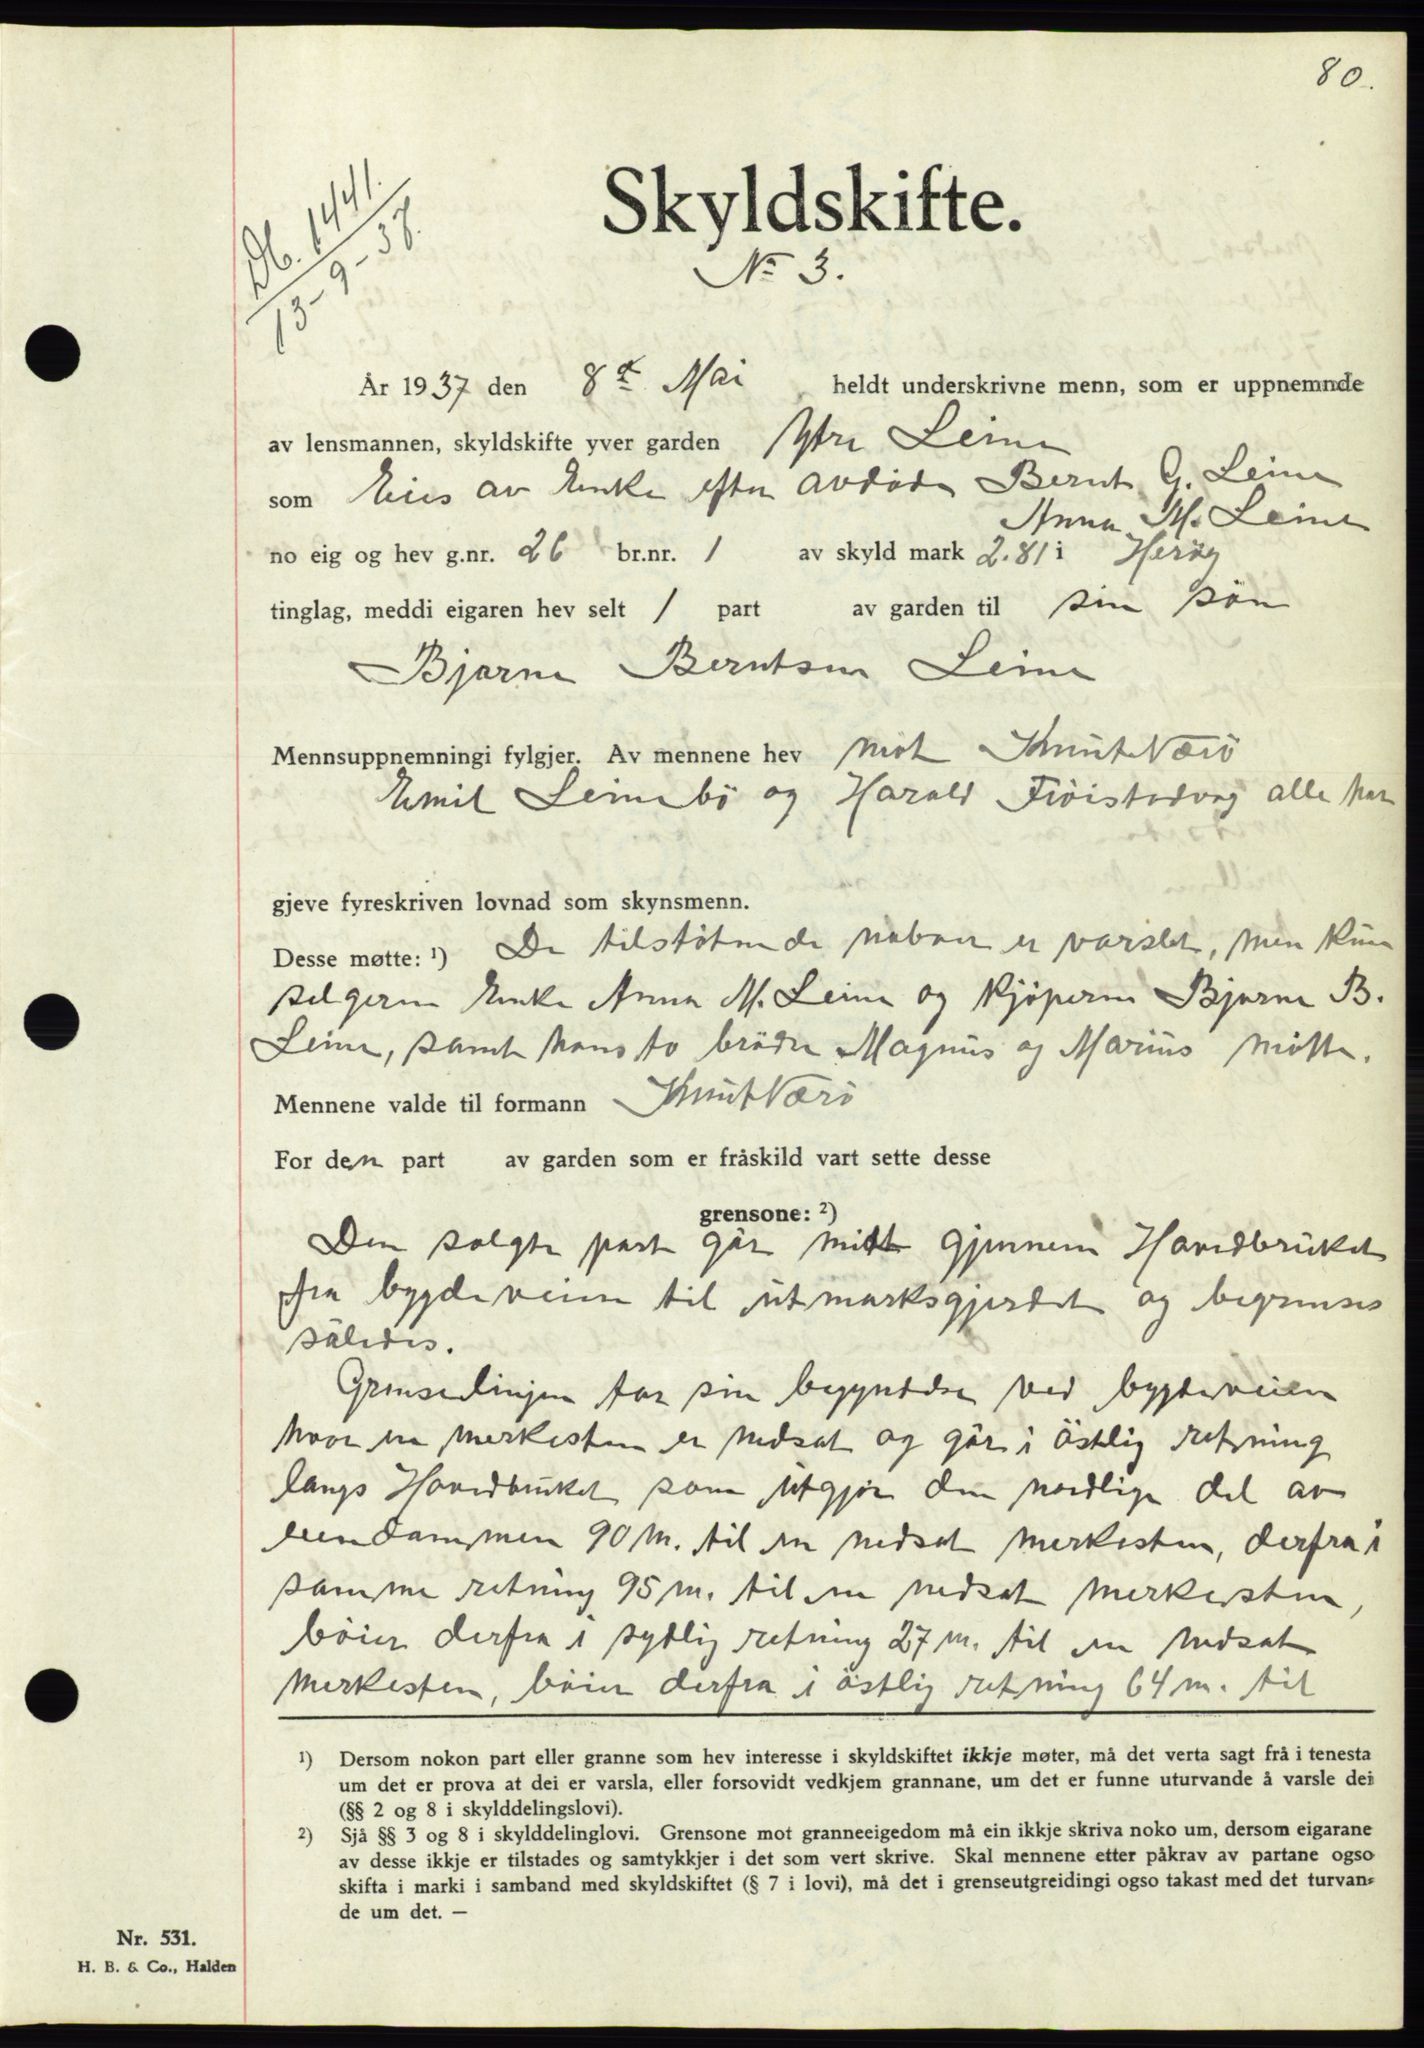 80.
Db. 1441.
13-9-37.
Skyldskifte.
No 3.
År 1937 den 8de Mai heldt underskrivne menn, som er uppnemnde
av lensmannen, skyldskifte yver garden Ytre Leine
som Eies av Enke efter avdøde Bernt G. Leine
Anna M. Leine
no eig og hev g.nr. 26 br.nr. 1 av skyld mark 2.81 i Herøy
tinglag, meddi eigaren hev selt 1 part av garden til sin søn
Bjarne Berntsen Leine
Mennsuppnemningi fylgjer. Av mennene hev møt Knut Værö
Emil Leinebö og Harald Flöistadvåg alle har
gjeve fyreskriven lovnad som skynsmenn.
Desse møtte: ¹) De tilstötende naboer er varslet, men kun
selgeren Enke Anna M. Leine og kjöperen Bjarne B.
Leine, samt hans to brödre Magnus og Marius mötte.
Mennene valde til formann Knut Værö
For den part av garden som er fråskild vart sette desse
grensone: ²)
Den solgte part går midt gjennem Hovedbruket
fra bygdeveien til utmarksgjerdet og begrenses
således.
Grenselinjen tar sin begynnelse ved bygdeveien
hvor en merkesten er nedsat og går i östlig retning
langs Hovedbruket som utgjör den nordlige del av
eiendommen 90 m. til en nedsat merkesten, derfra i
samme retning 95 m. til en nedsat merkesten,
böier derfra i sydlig retning 27 m. til en nedsat
merkesten, böier derfra i östlig retning 64 m. til
¹) Dersom nokon part eller granne som hev interesse i skyldskiftet ikkje møter, må det verta sagt frå i tenesta
um det er prova at dei er varsla, eller forsovidt vedkjem grannane, um det er funne uturvande å varsle dei
(§§ 2 og 8 i skylddelingslovi).
²) Sjå §§ 3 og 8 i skylddelinglovi. Grensone mot granneeigedom må ein ikkje skriva noko um, dersom eigarane
av desse ikkje er tilstades og samtykkjer i det som vert skrive. Skal mennene etter påkrav av partane ogso
skifta i marki i samband med skyldskiftet (§ 7 i lovi), må det i grenseutgreidingi ogso takast med det turvan-
de um det. —
Nr. 531.
H. B. & Co., Halden